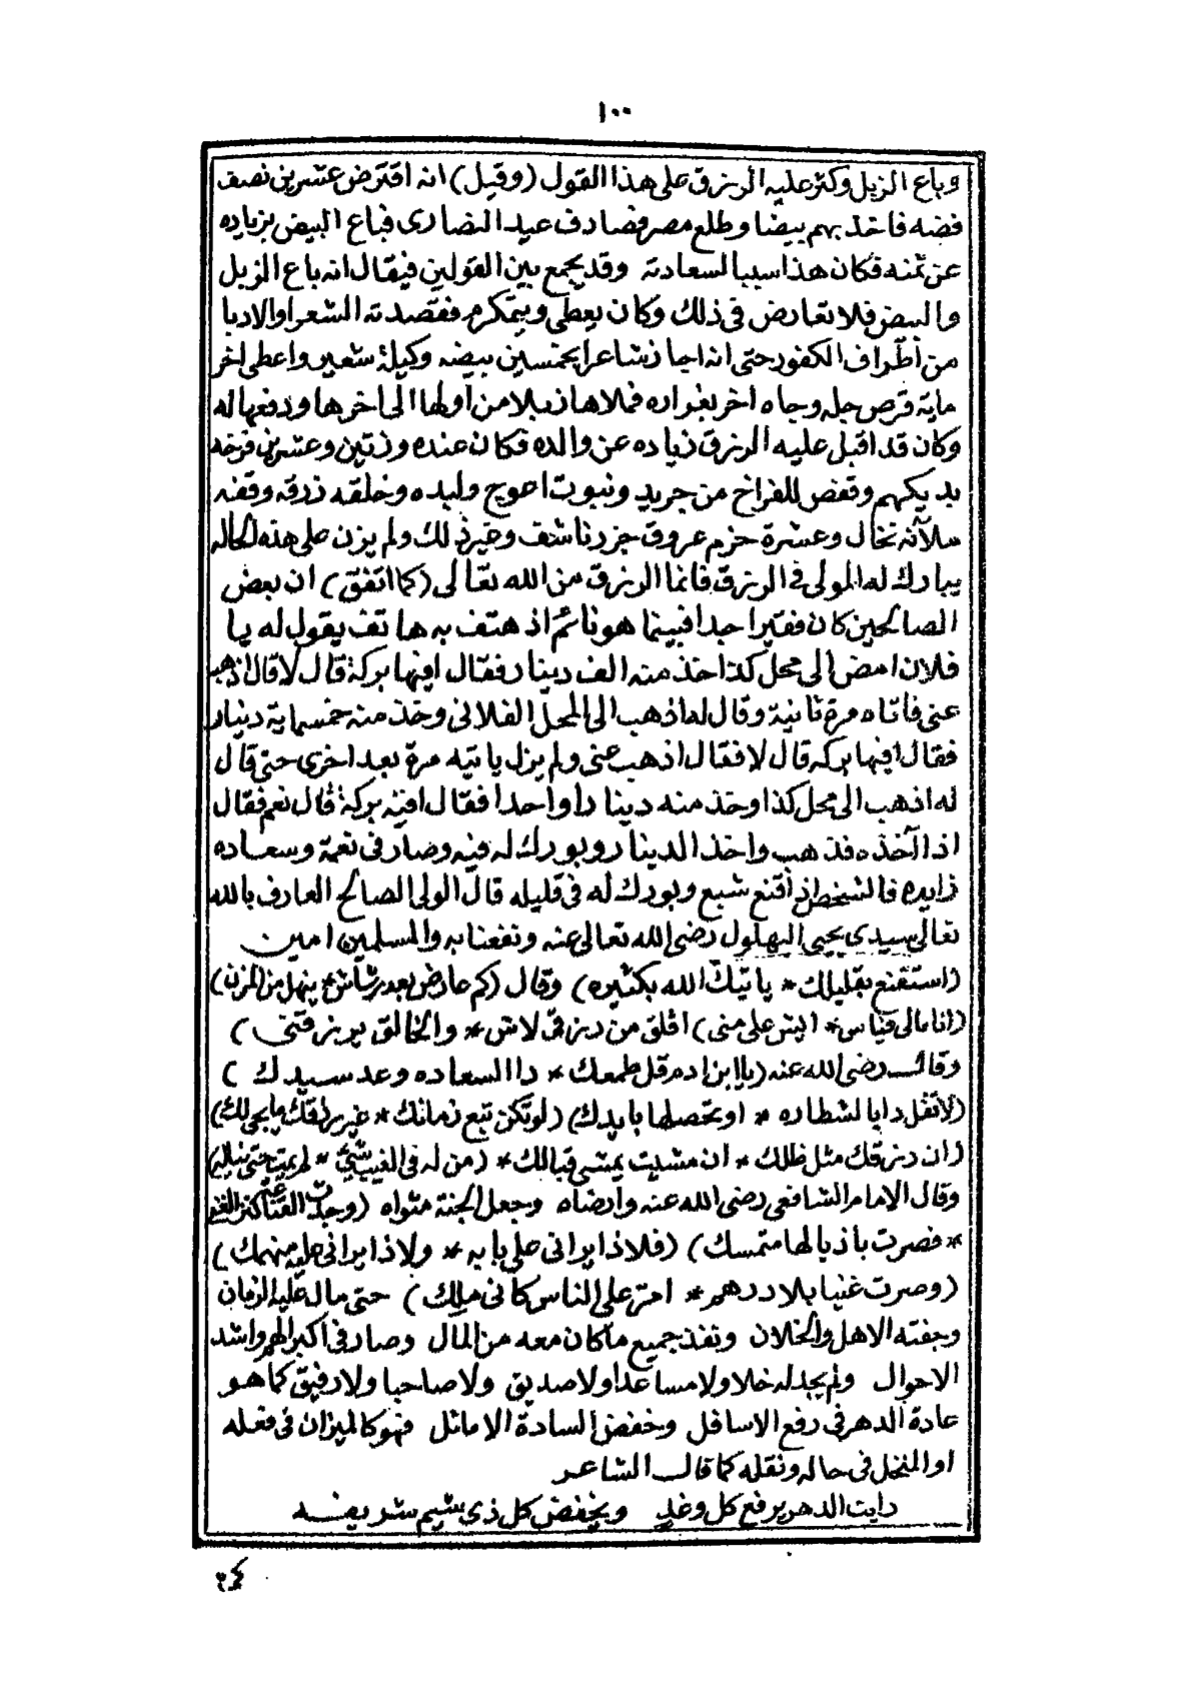 ١٠٠
وباع الزبل وكثر عليه الرزق على هذا القول (وقيل) انه اقترض عشرين نصف
فضه فاخذ بهم بيضا وطلع مصر فصادف عيد النصارى فباع البيض بزياده
عن ثمنه فكان هذا سببا لسعادته وقد يجمع بين القولين فيقال انه باع الزبل
والبيض فلا تعارض في ذلك وكان يعطي ويتكرم فقصدته الشعرا والادبا
من أطراف الكفور حتى انه اجاز شاعرا بخمسين بيضه وكيلة شعير واعطى اخر
ماية قرص جله وجاه اخر بغراره فملاها زبلا من أولها الى اخرها ودفعها له
وكان قد اقبل عليه الرزق زياده عن والده فكان عنده وزتين وعشرين فرخه
بديكهم وقفص للفراخ من جريد ونبوت اعوج ولبده وخلقه زرقه وقفه
ملآنه نخال وعشرة حزم عروق جزر ناشف وغير ذلك ولم يزن على هذه الحاله
يبارك له المولى في الرزق فانما الرزق من الله تعالى (كما اتفق) ان بعض
الصالحين كان فقيرا جدا فبينما هو نائم اذ هتف به هاتف يقول له يا
فلان امض الى محل كذا خذ منه الف دينار فقال افيها بركة قال لا قال اذهب
عنى فاتاه مرة ثانية وقال له اذهب الى المحل الفلانى وخذ منه خمسماية دينار
فقال افيها بركه قال لا فقال اذهب عنى ولم يزل ياتيه مرة بعد اخرى حتى قال
له اذهب الى محل كذا وخذ منه دينارا واحدا فقال افيه بركة قال نعم فقال
اذا آخذه فذهب واخذ الدينار وبورك له فيه وصار فى نعمة وسعاده
زايده فالشخص اذ أقنع شبع وبورك له فى قليله قال الولى الصالح العارف بالله
تعالى سيدى يحيى البهلول رضى الله تعالى عنه ونفعنا به والمسلمين امين
(استقنع بقليلك * ياتيك الله بكثيره) وقال (كم عارض بعد رشاش * ينهل من المزن)
(انا مالى قياس * ايش على منى) اقلق من رزقى لاش * والخالق يرزقنى )
وقال رضى الله عنه (يا ابن ادم قل طمعك * دا السعاده وعد سيدك )
(لا تقل دا يا لشطاره * او تحصلها بايدك) (لو تكن تبع زمانك * غير رزقك ما يجى لك)
(ان رزقك مثل ظلك * ان مشيت يمشى قبالك * (من له فى الغيب شئ * لم يمت حتى يناله)
وقال الامام الشافعى رضى الله عنه وارضاه وجعل الجنة مثواه (وجدت القناعه كنز الغنى
* فصرت باذيالها متمسك) (فلا ذا يرانى على بابه * ولا ذا يرانى عليه منهمك)
(وصرت غنيا بلا درهم * امر على الناس كانى ملك) حتى مال عليه الزمان
وجفته الاهل والخلان ونفذ جميع ما كان معه من المال وصار فى اكبر الهم واشد
الاحوال ولم يجد له خلا ولا مساعدا ولا صديق ولا صاحبا ولا رفيق كما هو
عادة الدهر فى رفع الاسافل وخفض السادة الاماثل فهو كالميزان فى فعله
او المنخل فى حاله ونقله كما قال الشاعر
رايت الدهر يرفع كل وغد ويخفض كل ذى شيم شريفه